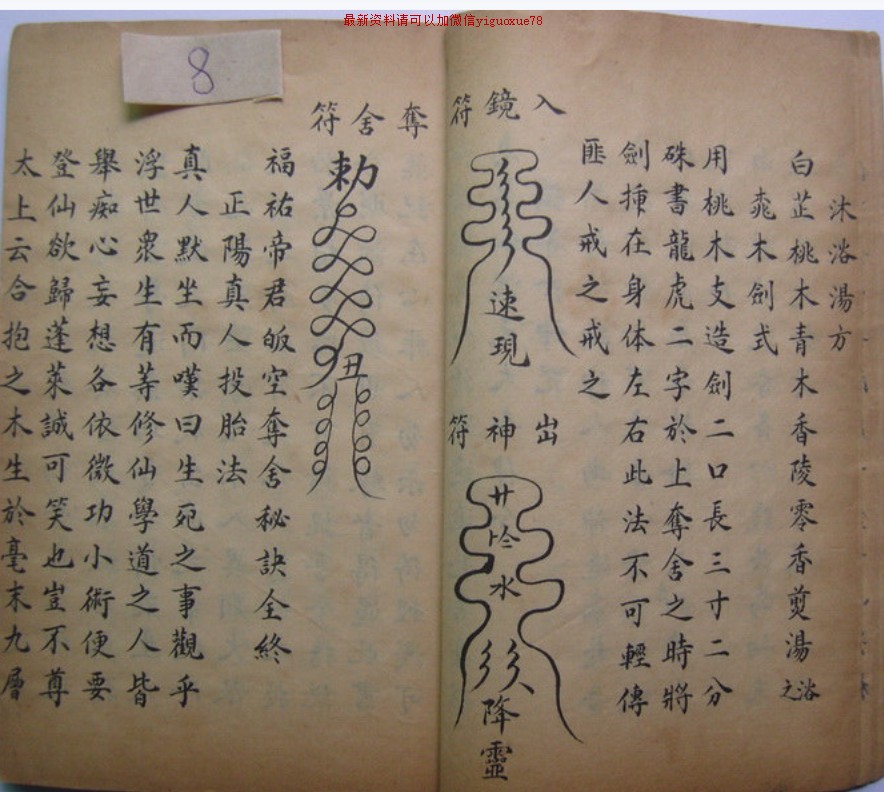 最新资料请可以加微信yiguoxue78
8
沐浴湯方
白芷桃木青木香陵零香煎湯浴之
桃木劍式
用桃木支造劍二口長三寸二分
硃書龍虎二字於上奪舍之時將
劍插在身体左右此法不可輕傳
匪人戒之戒之
入鏡符
速現
出神符
水
降靈
奪舍符
勅
福祐帝君皈空奪舍秘訣全終
正陽真人投胎法
真人默坐而嘆曰生死之事觀乎
浮世衆生有等修仙學道之人皆
舉痴心妄想各依微功小術便要
登仙欲歸蓬萊誠可笑也豈不尊
太上云合抱之木生於毫末九層